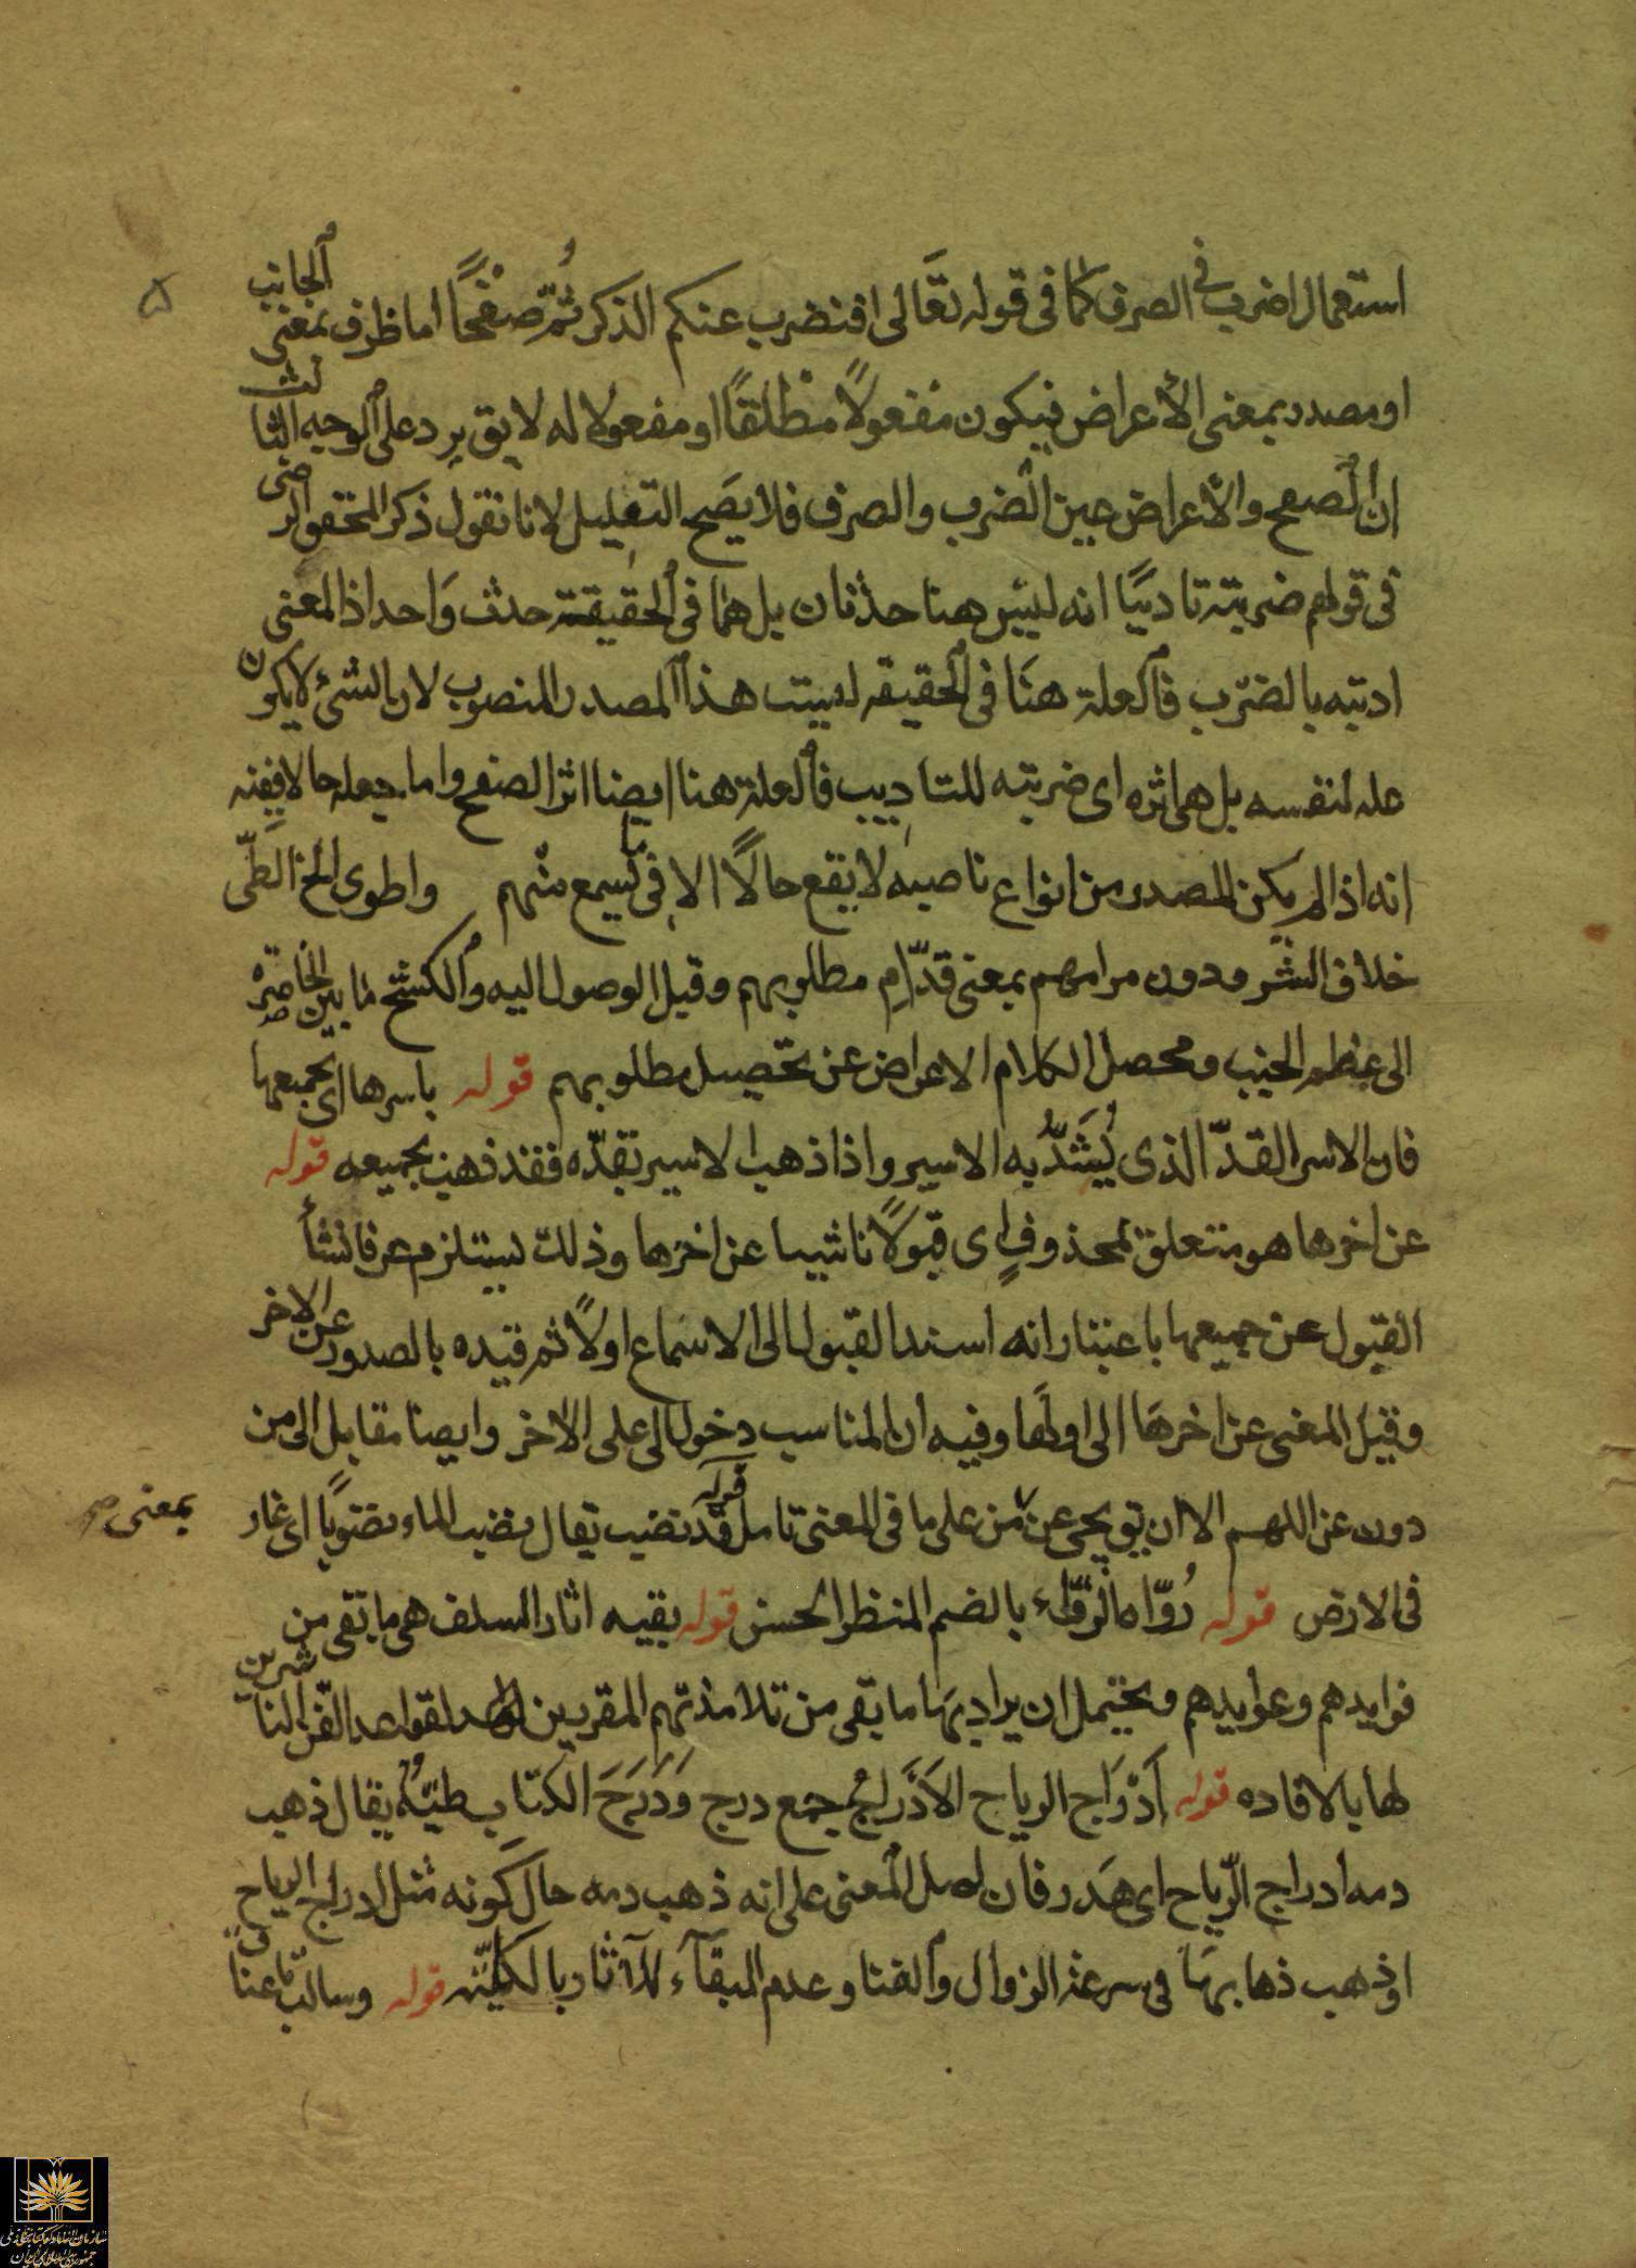 ۵
استعمال اضرب فى الصرف كما فى قوله تعَالى افنضرب عنكم الذكر ثمّ صفحًا اما ظرف بمعنى الجانب
او مصدر بمعنى الأعراض فيكون مفعولًا مطلقًا او مفعولا له لا يق يرد على الوجه الثالث
ان الصفح والأعراض عين الضرب والصرف فلا يصَح التعليل لانا نقول ذكر المحقق الرضى
فى قولهم ضربته تاديبًا انه ليس هنا حدثان بل هما فى الحقيقة حدث وَاحد اذ المعنى
ادبته بالضرب فالعلة هنَا فى الحقيقه ليست هذا المصدر المنصوب لان الشئ لا يكون
عله لنفسه بل هى اثره اى ضربته للتاديب فالعلة هنا ايضا اثر الصفح واما جعله حالا ففيه
انه اذا لم يكن المصدر من انواع ناصبه لا يقع حالًا الا فى ما يسمع منهم واطوى الخ الطّى
خلاف النشر ودون مرامهم بمعنى قدّام مطلوبهم وقبل الوصول اليه والكشح ما بين الخاصرة
الى عظم الجنب ومحصل الكلام الاعراض عن تحصيل مطلوبهم قوله باسرها اى بجميعها
فان الاسر القدّ الذى يُشَدُّ به الاسير واذا ذهب الاسير بقدّه فقد ذهب بجميعه قوله
عن اخرها هو متعلق بمحذوفٍ اى قبولًا ناشيا عن اخرها وذلك يستلزم عرفا نشأ
القبول عن جميعها باعتبار انه اسند القبول الى الاسماع اولًا ثم قيده بالصدور عن الاخر
وقيل المعنى عن اخرهَا الى اولها وفيه ان المناسب دخول الى على الاخر وايضا مقابل الى من
دون عن اللهم الا ان يق يجى عن بمعنى من على ما فى المعنى تامل قوله قد نضب يقال نضب الماء نضوبًا اى غار
فى الارض قوله رُوّاه الرواء بالضم المنظر الحسن قوله بقيه اثار السلف هى ما بقى من
فوايدهم وعوايدهم ويحتمل ان يراد بهَا ما بقى من تلامذتهم المقربين لقواعد الفن الناشرين
لها بالافاده قوله أَدْرَاج الرياح الأَدْرَاجُ جمع درج وَدَرَجَ الكتاب طيّهُ يقال ذهب
دمه ادراج الرّياح اى هَدر فان اصل المعنى على انه ذهب دمه حال كونه مثل ادراج الرياح
او ذهب ذهابهَا فى سرعة الزوال والفنا وعدم البقآء للآثار بالكليّة قوله وسالت باعناق